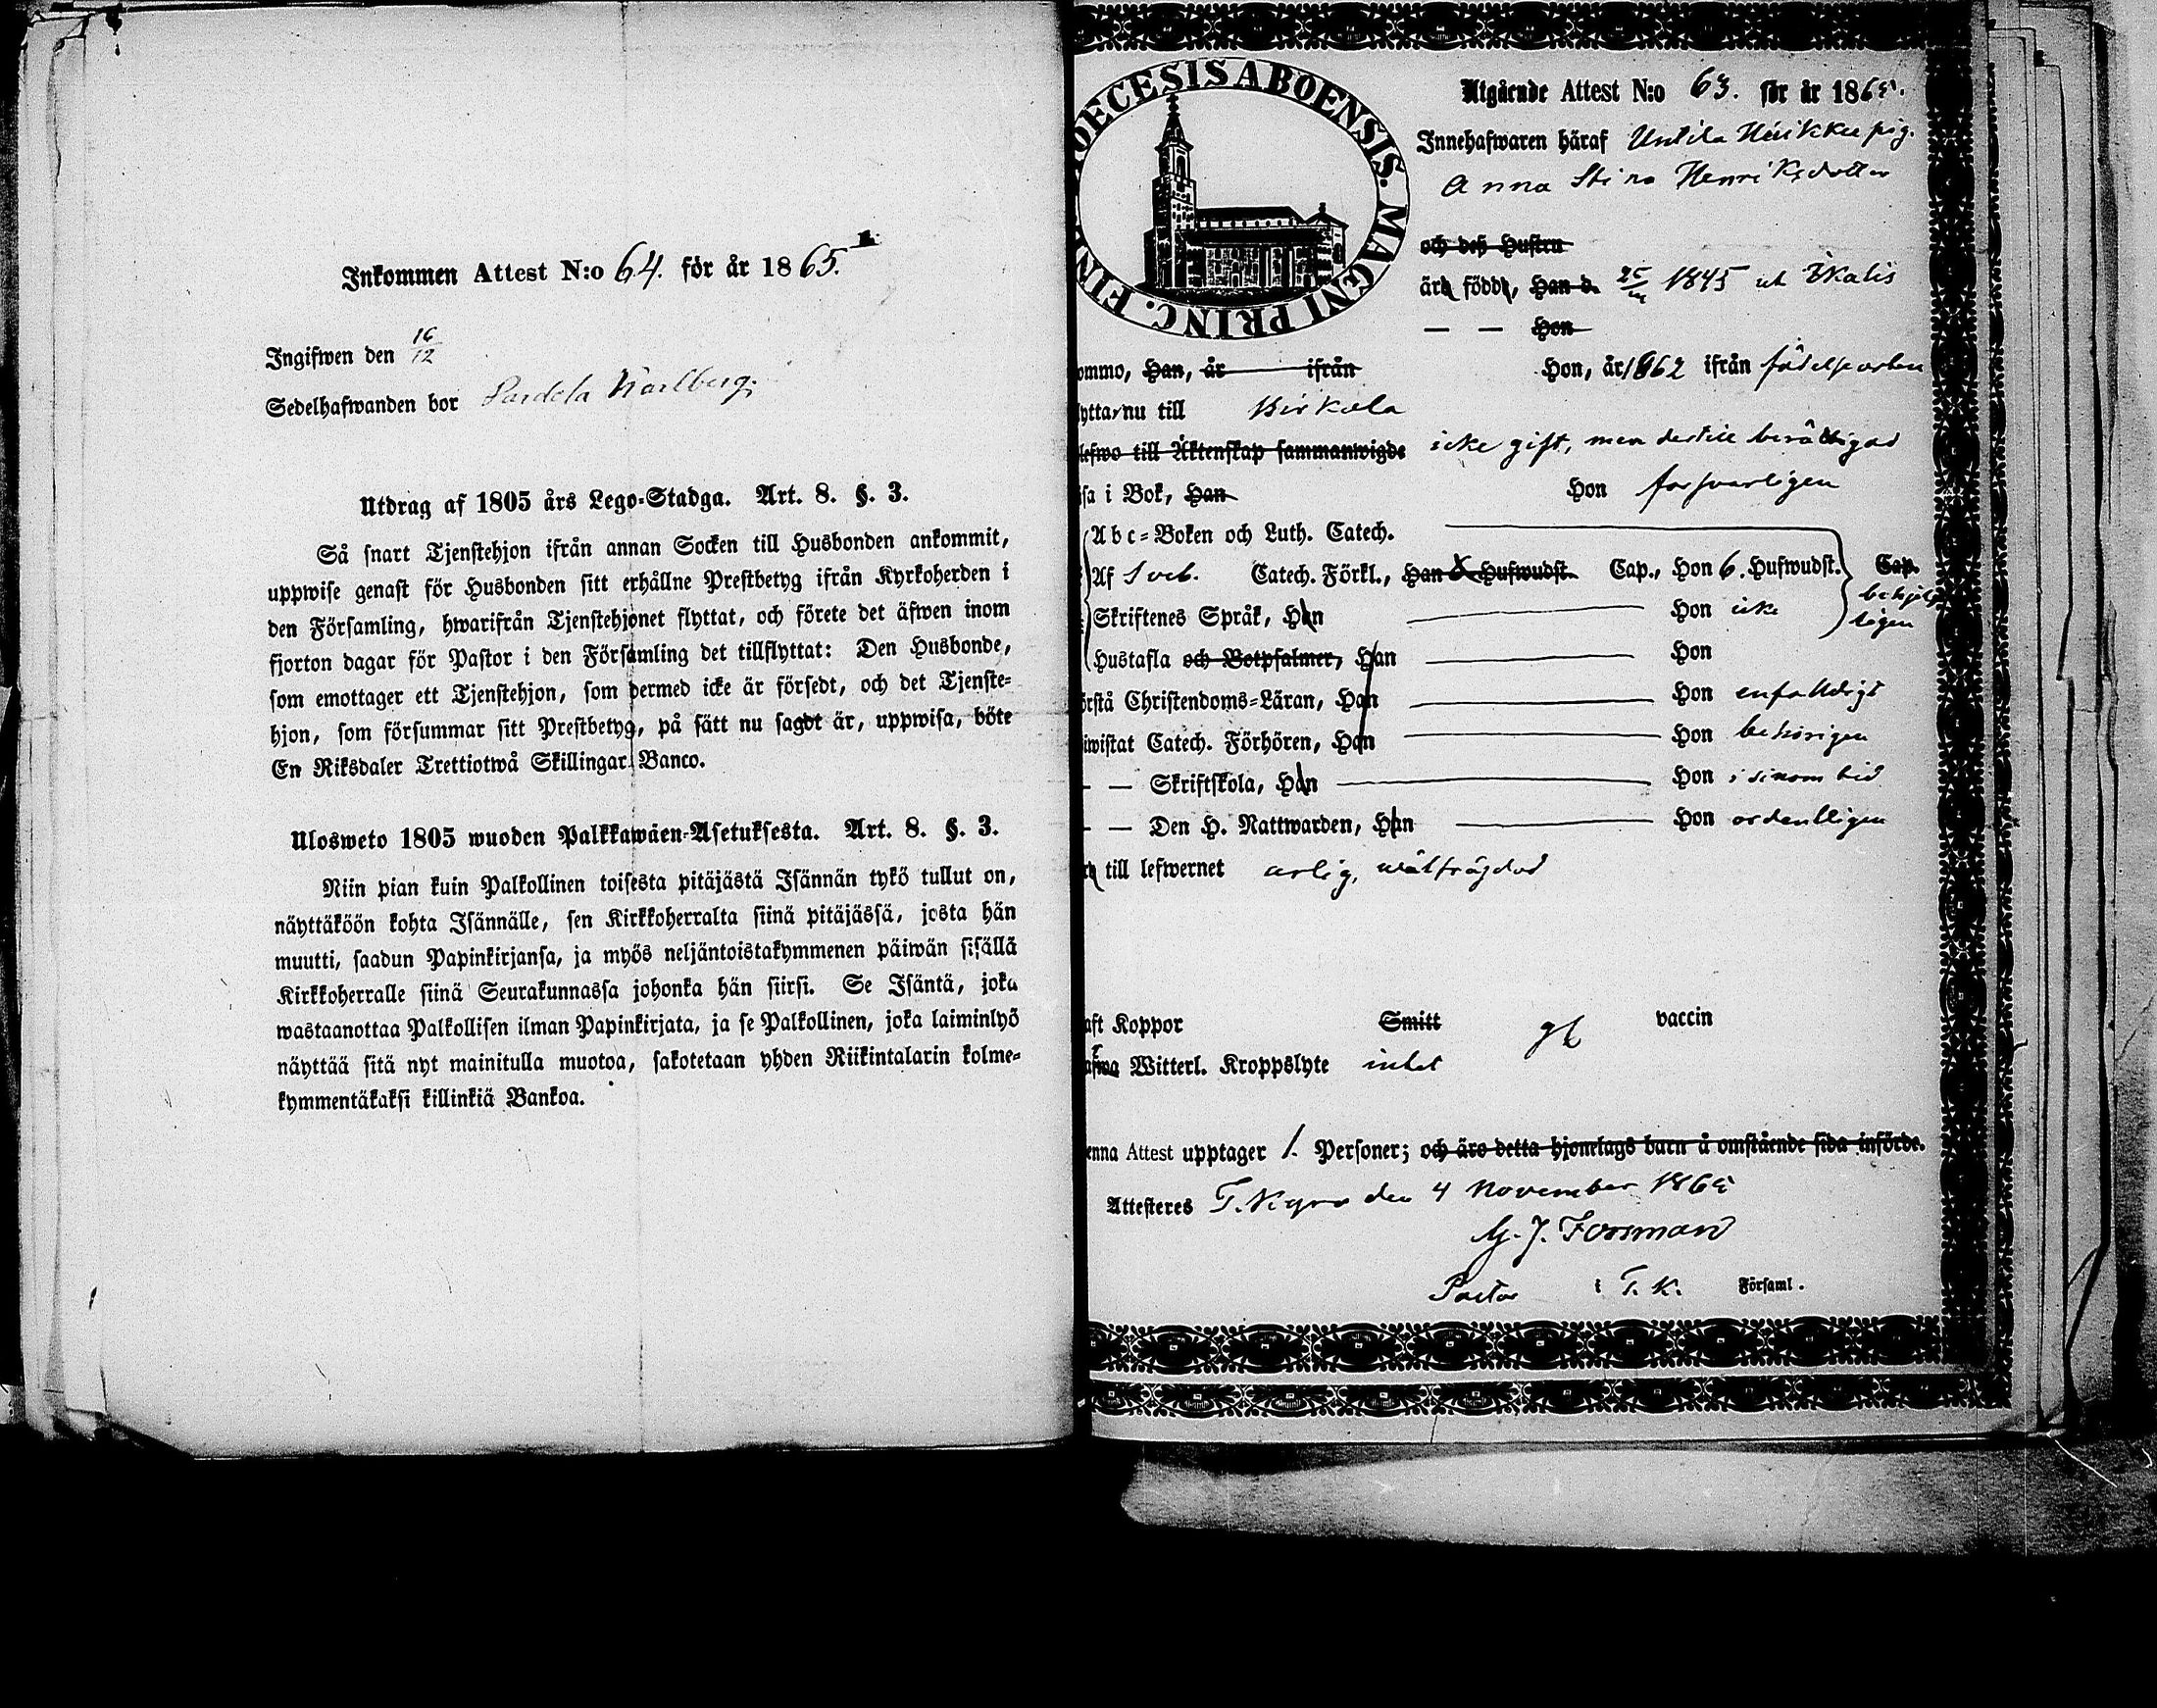 Inkommen Attest N:o 64. för år 1865.
Ingifwen den 16/12
Sedelhafwanden bor Pardela Karlberg.
Utdrag af 1805 års Lego-Stadga. Art. 8. §. 3.
Så snart Tjenstehjon ifrån annan Socken till Husbonden ankommit,
uppwise genast för Husbonden sitt erhållne Prestbetyg ifrån Kyrkoherden i
den Församling, hwarifrån Tjenstehjonet flyttat, och förete det äfwen inom
fjorton dagar för Pastor i den Församling det tillflyttat: Den Husbonde,
som emottager ett Tjenstehjon, som dermed icke är försedt, och det Tjenste-
hjon, som försummar sitt Prestbetyg, på sätt nu sagdt är, uppwisa, böte
En Riksdaler Trettiotwå Skillingar Banco.
Ulosweto 1805 wuoden Palkkawäen-Asetuksesta. Art. 8. §. 3.
Niin pian kuin Palkollinen toisesta pitäjästä Isännän tykö tullut on,
näyttäköön kohta Isännälle, sen Kirkkoherralta siinä pitäjässä, josta hän
muutti, saadun Papinkirjansa, ja myös neljäntoistakymmenen päiwän sisällä
Kirkkoherralle siinä Seurakunnassa johonka hän siirsi. Se Isäntä, joka
wastaanottaa Palkollisen ilman Papinkirjata, ja se Palkollinen, joka laiminlyö
näyttää sitä nyt mainitulla muotoa, sakotetaan yhden Riikintalarin kolme-
kymmentäkaksi killinkiä Bankoa.
OECESIS ABOENSIS. MAGNI PRINC. FIN
Utgående Attest N:o 63. för år 1865.
Innehafwaren häraf Untila Heikku pig.
Anna Stina Henriksdotter
och deß Hustru
äro födde, Han d. 1845 uti Ikalis
— — Hon
ommo, Han, år ifrån Hon, år 1862 ifrån födelseorten
yttar nu till Birkala
lefwo till Äktenskap sammanwigde icke gift, men dertill berättigad
sa i Bok, Han Hon forsvarligen
Abc-Boken och Luth. Catech.
Af Sveb. Catech. Förkl., Han Hufwudst. Cap., Hon 6. Hufwudst. Cap.
behjelp
ligen
Skriftenes Språk, Han Hon icke
Hustafla och Botpsalmer, Han Hon
örstå Christendoms-Läran, Han Hon enfalldigt
iwistat Catech. Förhören, Han Hon behörigen
— — Skriftskola, Han Hon i sinom tid
— — Den H. Nattwarden, Han Hon ordentligen
till lefwernet arlig, wälfrägdad
aft Koppor Smitt vaccin
afwa Witterl. Kroppslyte intet
enna Attest upptager 1. Personer; och äro detta hjonelags barn å omstående sida införde.
Attesteres T. Kyro den 4 November 1865
G. J. Forsman
Pastor i T. K. Församl.